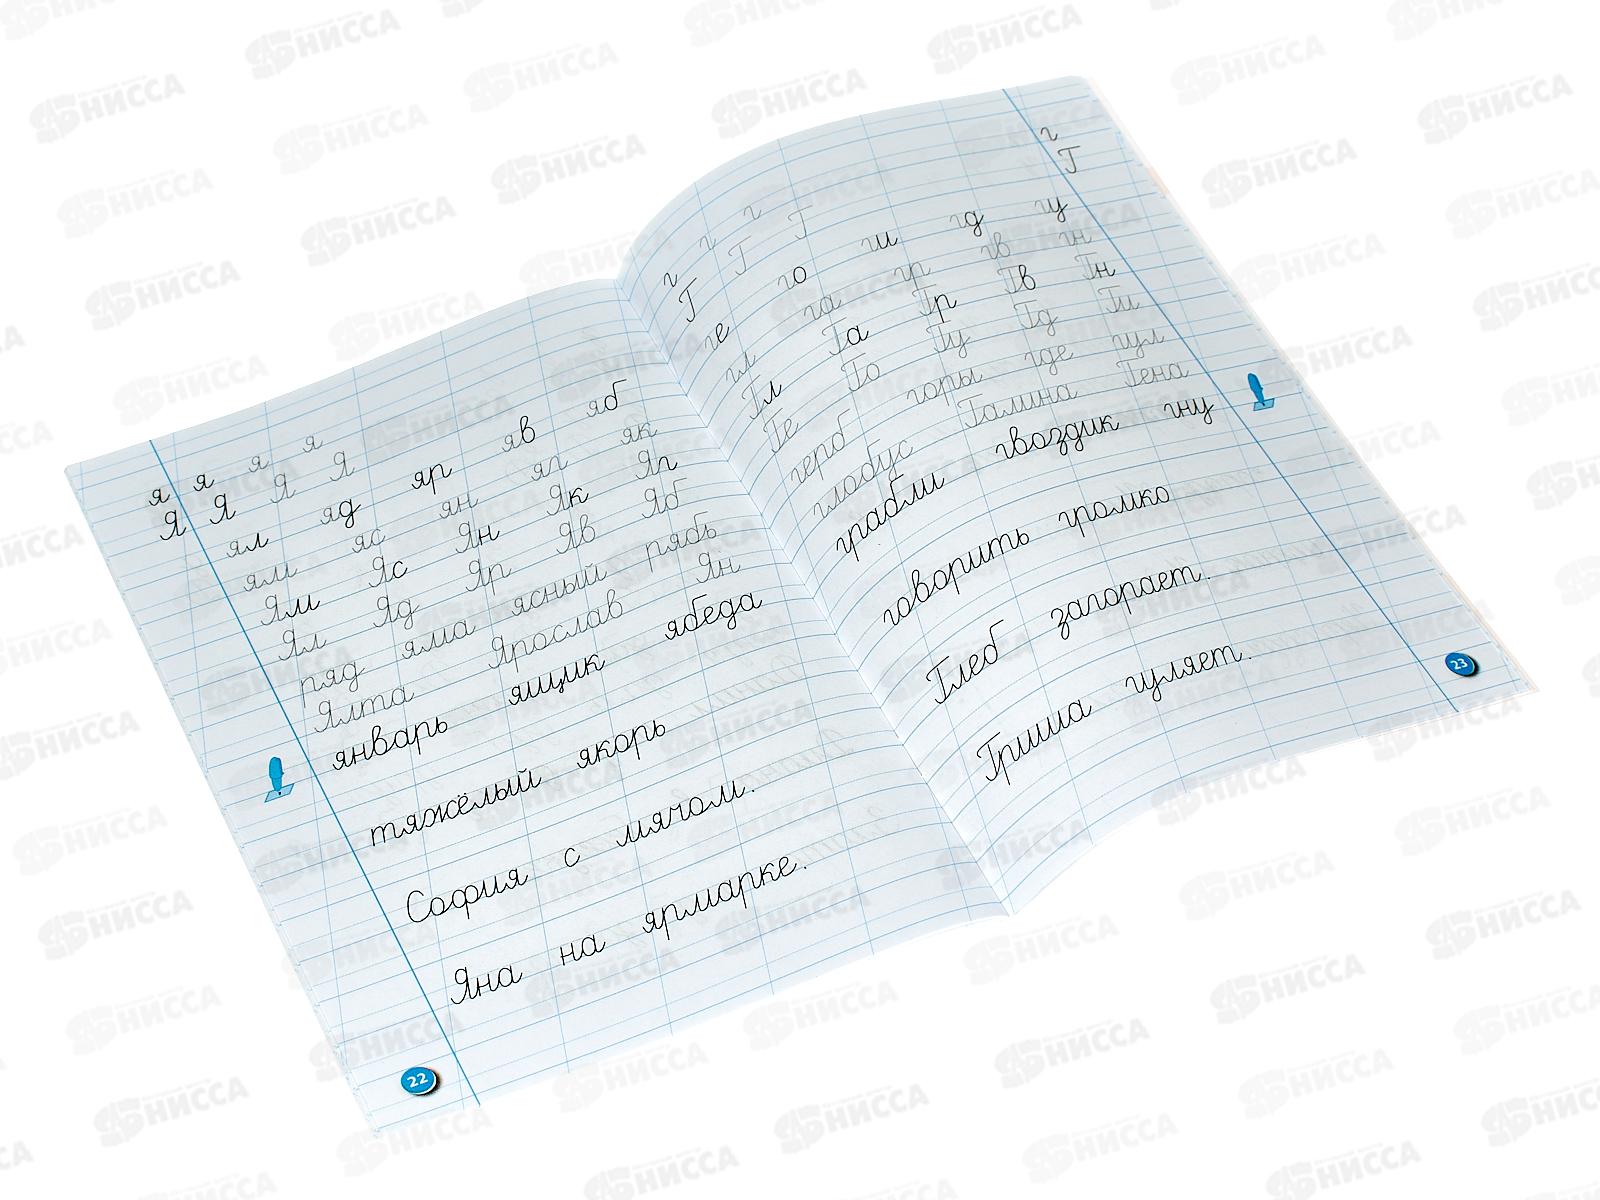 я я я я
Я Я Я Я
ял яд яр яв яб
ям яс ян яг як
Ям Яс Ян Як Яг
Ял Яд Яр Яв Яб
ряд яма ясный рябь
Ялта Ярослав Ян
январь ящик ябеда
тяжёлый якорь
София с мячом.
Яна на ярмарке.
22
г г г г
Г Г Г Г
ге го ги гд гу
гл га гр гв гн
Гл Га Гр Гв Гн
Ге Го Гу Гд Ги
герб горы где гул
глобус Галина Гена
грабли гвоздик гну
говорить громко
Глеб загорает.
Гриша гуляет.
23
НИССА